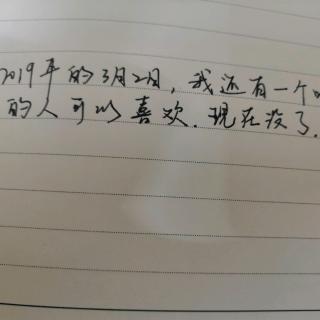 2019年的3月2日，我还有一个
的人可以喜欢．现在没了．